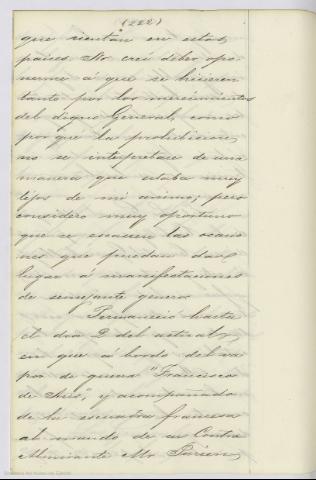 (222)
que sientan en estos
paises. No creí deber opo-
nerme á que se hiciesen
tanto por los merecimientos
del digno General, como
por que la prohibicion
no se interpretase de una
manera que estaba muy
lejos de mi animo; pero
considero muy oportuno
que se escasen las ocasio
nes que puedan dar
lugar á manifestaciones
de semejante genero.
Permaneció hasta
el dia 2 del actual,
en que á bordo del va
por de guerra "Francisco
de Asis", y acompañado
de la escuadra francesa
al mando de su Contra
Almirante Mr.